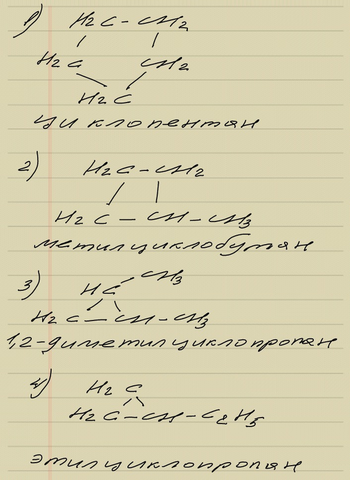 1) H₂C - CH₂
H₂C CH₂
H₂C
циклопентан
2) H₂C - CH₂
H₂C - CH - CH₃
метилциклобутан
3) HC - CH₃
H₂C - CH - CH₃
1,2-диметилциклопропан
4) H₂C
H₂C - CH - C₂H₅
этилциклопропан